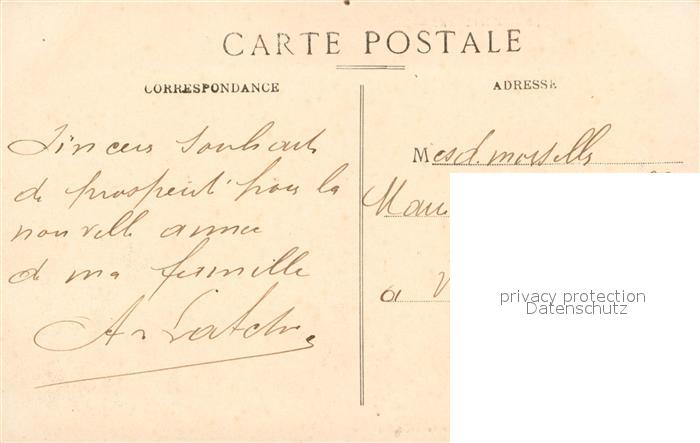 CARTE POSTALE
CORRESPONDANCE
ADRESSE
Sinceres Souhaits
de prosperité pour la
nouvelle annee
de ma famille
Mesd. moiselles
a
privacy protection
Datenschutz